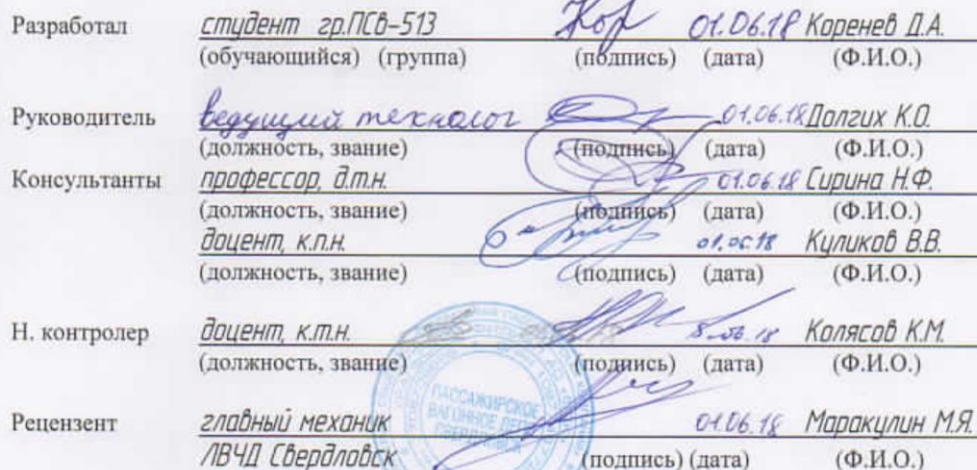 Разработал студент гр.ПСв-513 01.06.18 Коренев Д.А.
(обучающийся) (группа) (подпись) (дата) (Ф.И.О.)
Руководитель ведущий технолог 01.06.18 Долгих К.О.
(должность, звание) (подпись) (дата) (Ф.И.О.)
Консультанты профессор, д.т.н. 01.06.18 Сирина Н.Ф.
(должность, звание) (подпись) (дата) (Ф.И.О.)
доцент, к.п.н. 01.06.18 Куликов В.В.
(должность, звание) (подпись) (дата) (Ф.И.О.)
Н. контролер доцент, к.т.н. Колясов К.М.
(должность, звание) (подпись) (дата) (Ф.И.О.)
ПАССАЖИРСКОЕ
ВАГОННОЕ ДЕПО
Рецензент главный механик 01.06.18 Маракулин М.Я.
ЛВЧД Свердловск (подпись) (дата) (Ф.И.О.)